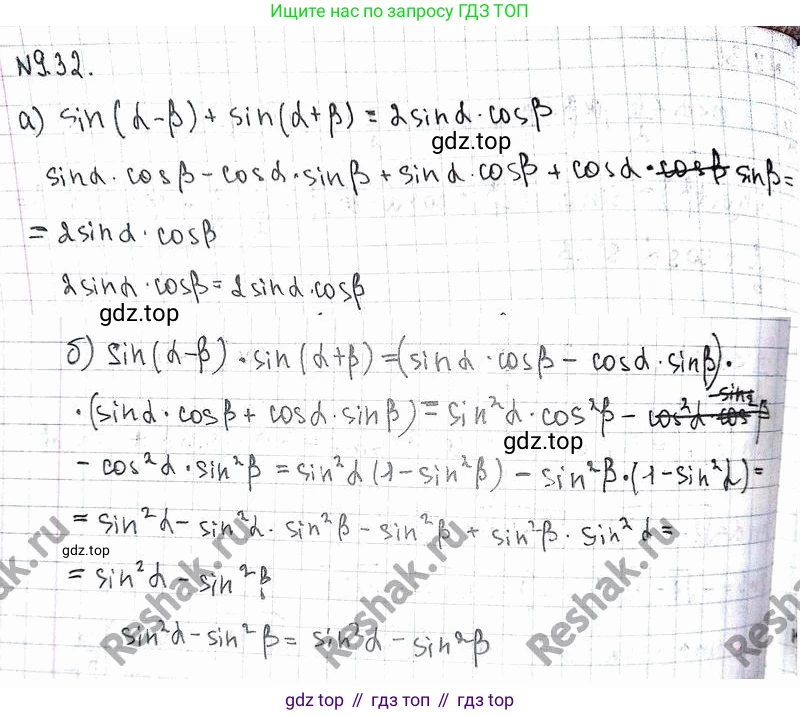 Ищите нас по запросу ГДЗ ТОП
N9.32.
а) sin(α-β)+sin(α+β)=2sinα·cosβ
gdz.top
sinα·cosβ-cosα·sinβ+sinα·cosβ+cosα·cosβ sinβ=
=2sinα·cosβ
2sinα·cosβ=2sinα·cosβ
gdz.top
б) sin(α-β)·sin(α+β)=(sinα·cosβ-cosα·sinβ)·
·(sinα·cosβ+cosα·sinβ)=sin²α·cos²β-
gdz.top
-cos²α·sin²β=sin²α(1-sin²β)-sin²β·(1-sin²α)=
=sin²α-sin²α·sin²β-sin²β+sin²β·sin²α=
gdz.top
=sin²α-sin²β
sin²α-sin²β=sin²α-sin²β
Reshak.ru
Reshak.ru
Reshak.ru
Reshak.ru
Reshak.ru
gdz top // гдз топ // gdz top